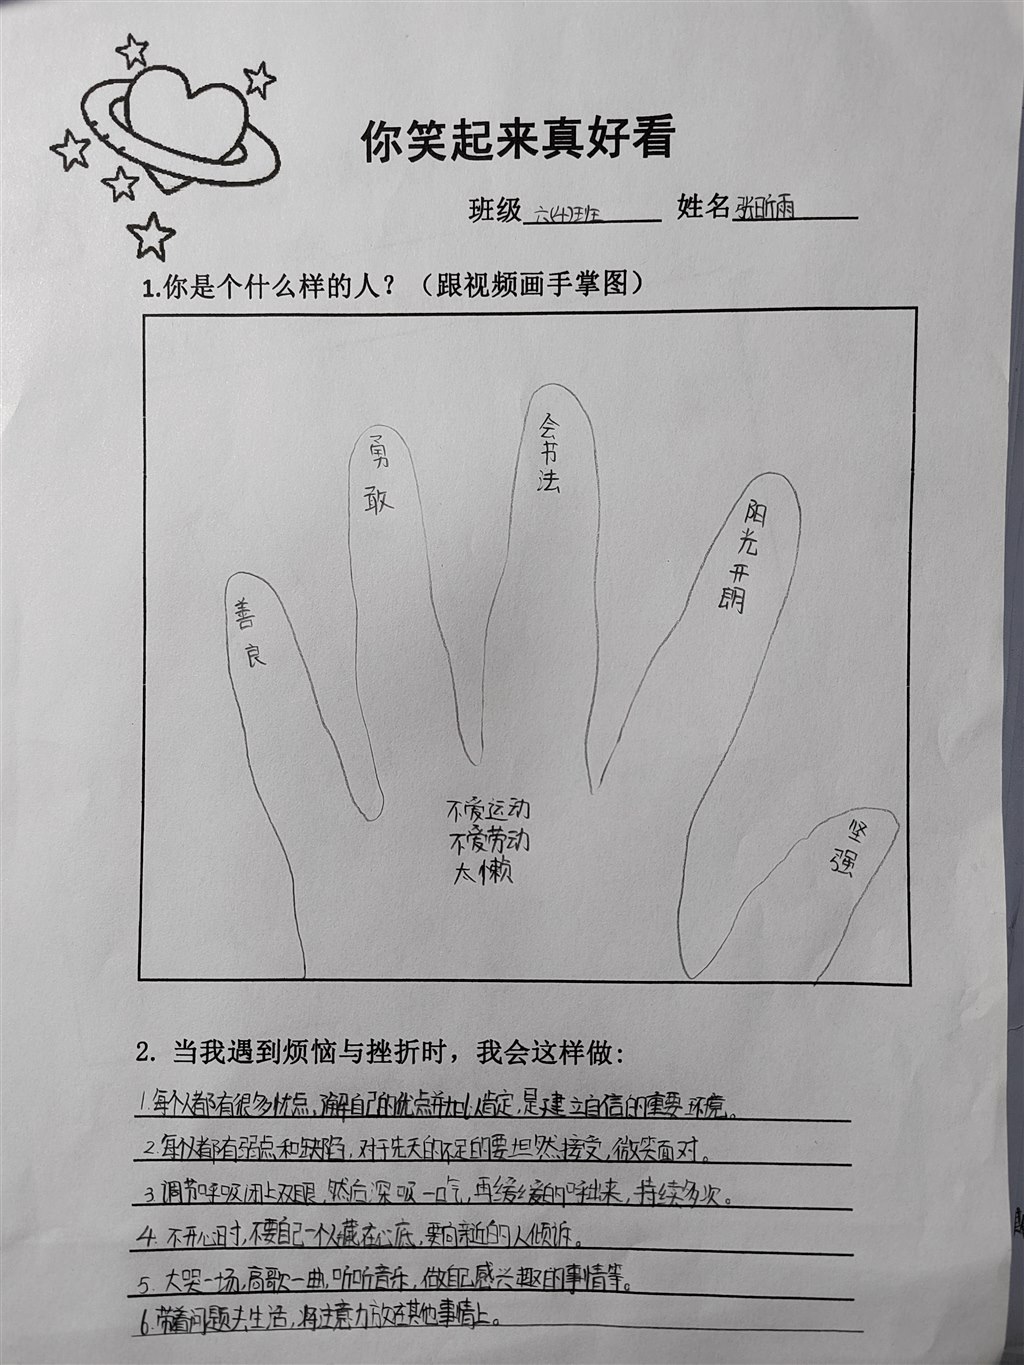 你笑起来真好看
班级 六(4)班 姓名 张昕雨
1.你是个什么样的人？（跟视频画手掌图）
善良
勇敢
会书法
阳光开朗
坚强
不爱运动
不爱劳动
太懒
2. 当我遇到烦恼与挫折时，我会这样做:
1.每个人都有很多优点,了解自己的优点并加以肯定,是建立自信的重要环境。
2.每个人都有弱点和缺陷,对于先天的不足的要坦然接受,微笑面对。
3.调节呼吸闭上双眼,然后深吸一口气,再缓缓的呼出来,持续多次。
4.不开心时,不要自己一个人藏在心底,要向亲近的人倾诉。
5.大哭一场,高歌一曲,听听音乐,做自己感兴趣的事情等。
6.带着问题去生活,将注意力放在其他事情上。